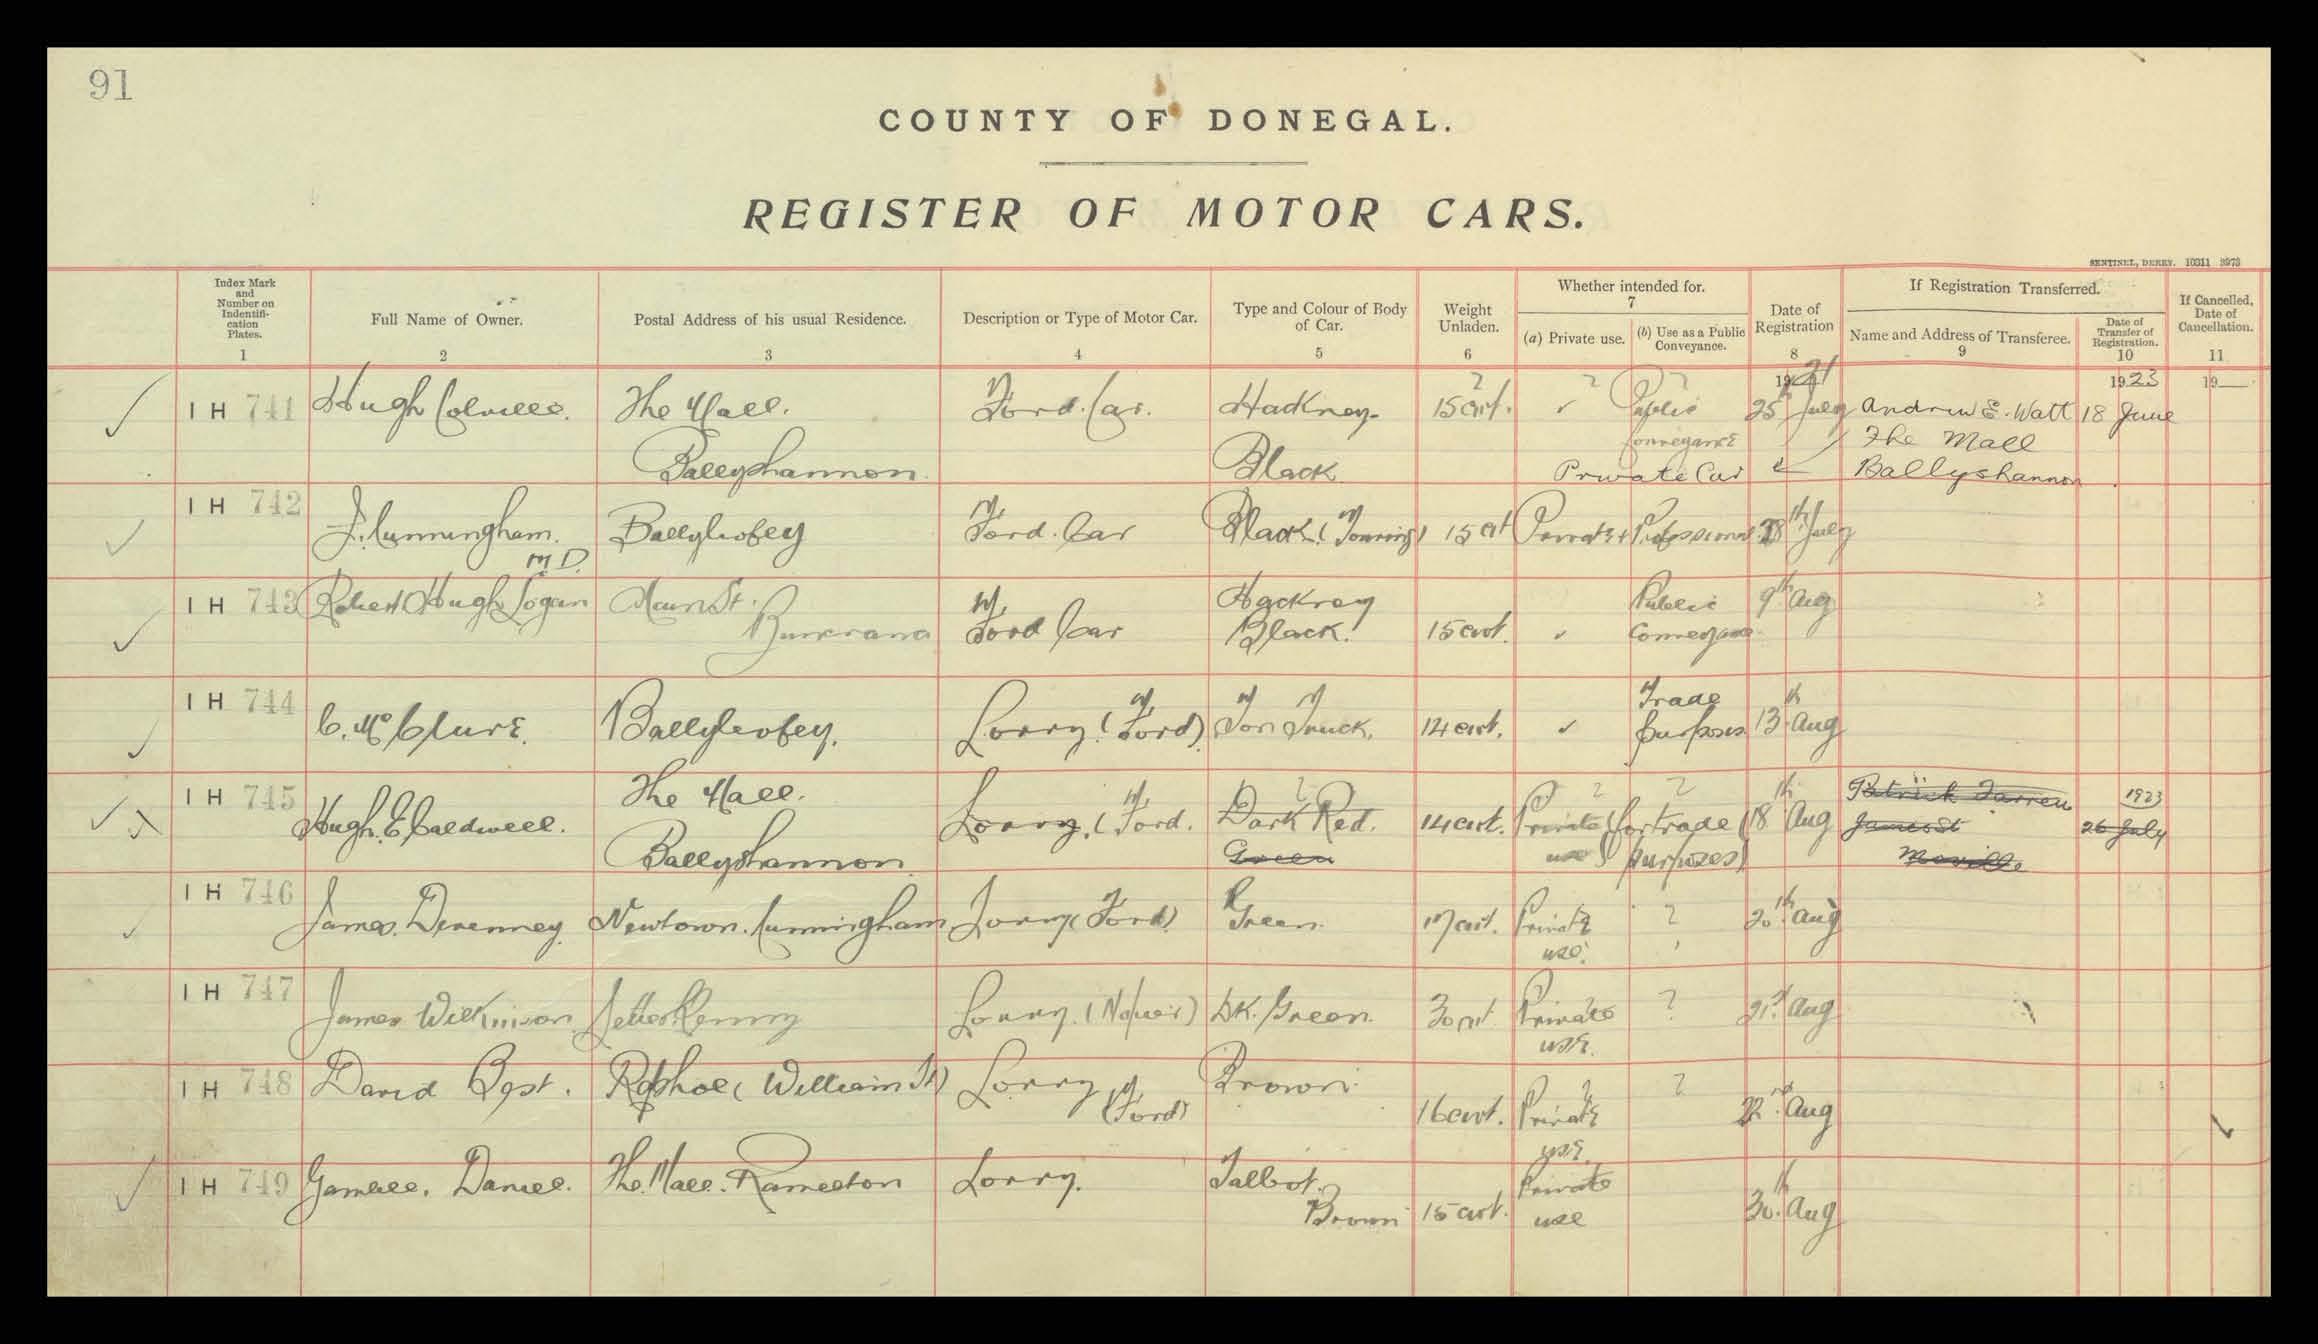 91
COUNTY OF DONEGAL.
REGISTER OF MOTOR CARS.
SENTINEL, DERRY. 10311 3973
Index Mark and Number on Indentifi-cation Plates. Full Name of Owner. Postal Address of his usual Residence. Description or Type of Motor Car. Type and Colour of Body of Car. Weight Unladen. Whether intended for. 7 (a) Private use. (b) Use as a Public Conveyance. Date of Registration If Registration Transferred. Name and Address of Transferee. Date of Transfer of Registration. If Cancelled, Date of Cancellation.
1 2 3 4 5 6 8 9 10 11
1921 1923 19
IH 741 Hugh Colville. The Mall. Ford. Car. Hackney 15 cwt. Public 25th July Andrew E. Watt 18 June
Conveyance The Mall
Ballyshannon. Black Private Car Ballyshannon
IH 742 J. Cunningham. Ballybofey Ford. Car Black (Touring) 15 cwt Private + Professional 28th July
M.D.
IH 743 Robert Hugh Logan Main St. Ford Car Hackney Public 9th Aug
Buncrana Black. 15 cwt. Conveyance
IH 744 Trade
C. McClure. Ballybofey. Lorry. (Ford) Ton Truck. 14 cwt. purposes 13th Aug
IH 745 The Mall. Patrick Farren 1923
Hugh. E. Caldwell. Lorry. (Ford. Dark Red. 14 cwt. Private (for trade 18th Aug James St 26 July
Ballyshannon. Green use purposes) Moville
IH 746
James. Devenney. Newtown. Cunningham Lorry (Ford) Green. 17 cwt. Private ? 20th Aug
use.
IH 747
James Wilkinson Letterkenny Lorry. (Napier) Dk. Green. 30 cwt Private ? 21st Aug
use.
IH 748 David Best. Raphoe (William St) Lorry Brown ?
(Ford) 16 cwt. Private 22nd Aug
use.
IH 749 Gamble. Daniel. The Mall. Ramelton Lorry. Talbot. Private
Brown 15 cwt. use 30th Aug